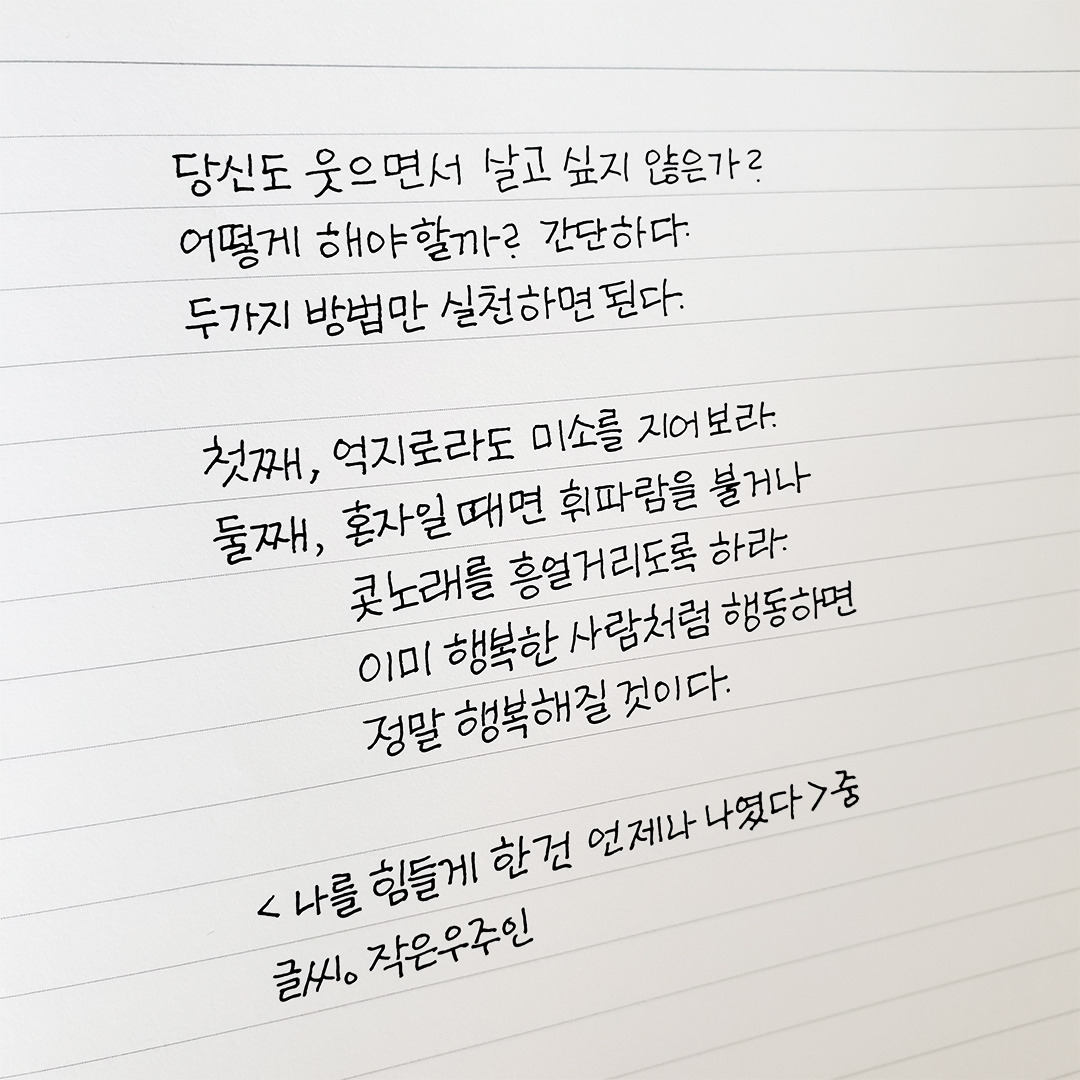 당신도 웃으면서 살고 싶지 않은가?
어떻게 해야할까? 간단하다.
두가지 방법만 실천하면 된다.
첫째, 억지로라도 미소를 지어보라.
둘째, 혼자일 때면 휘파람을 불거나
콧노래를 흥얼거리도록 하라.
이미 행복한 사람처럼 행동하면
정말 행복해질 것이다.
<나를 힘들게 한건 언제나 나였다>중
글씨。작은우주인